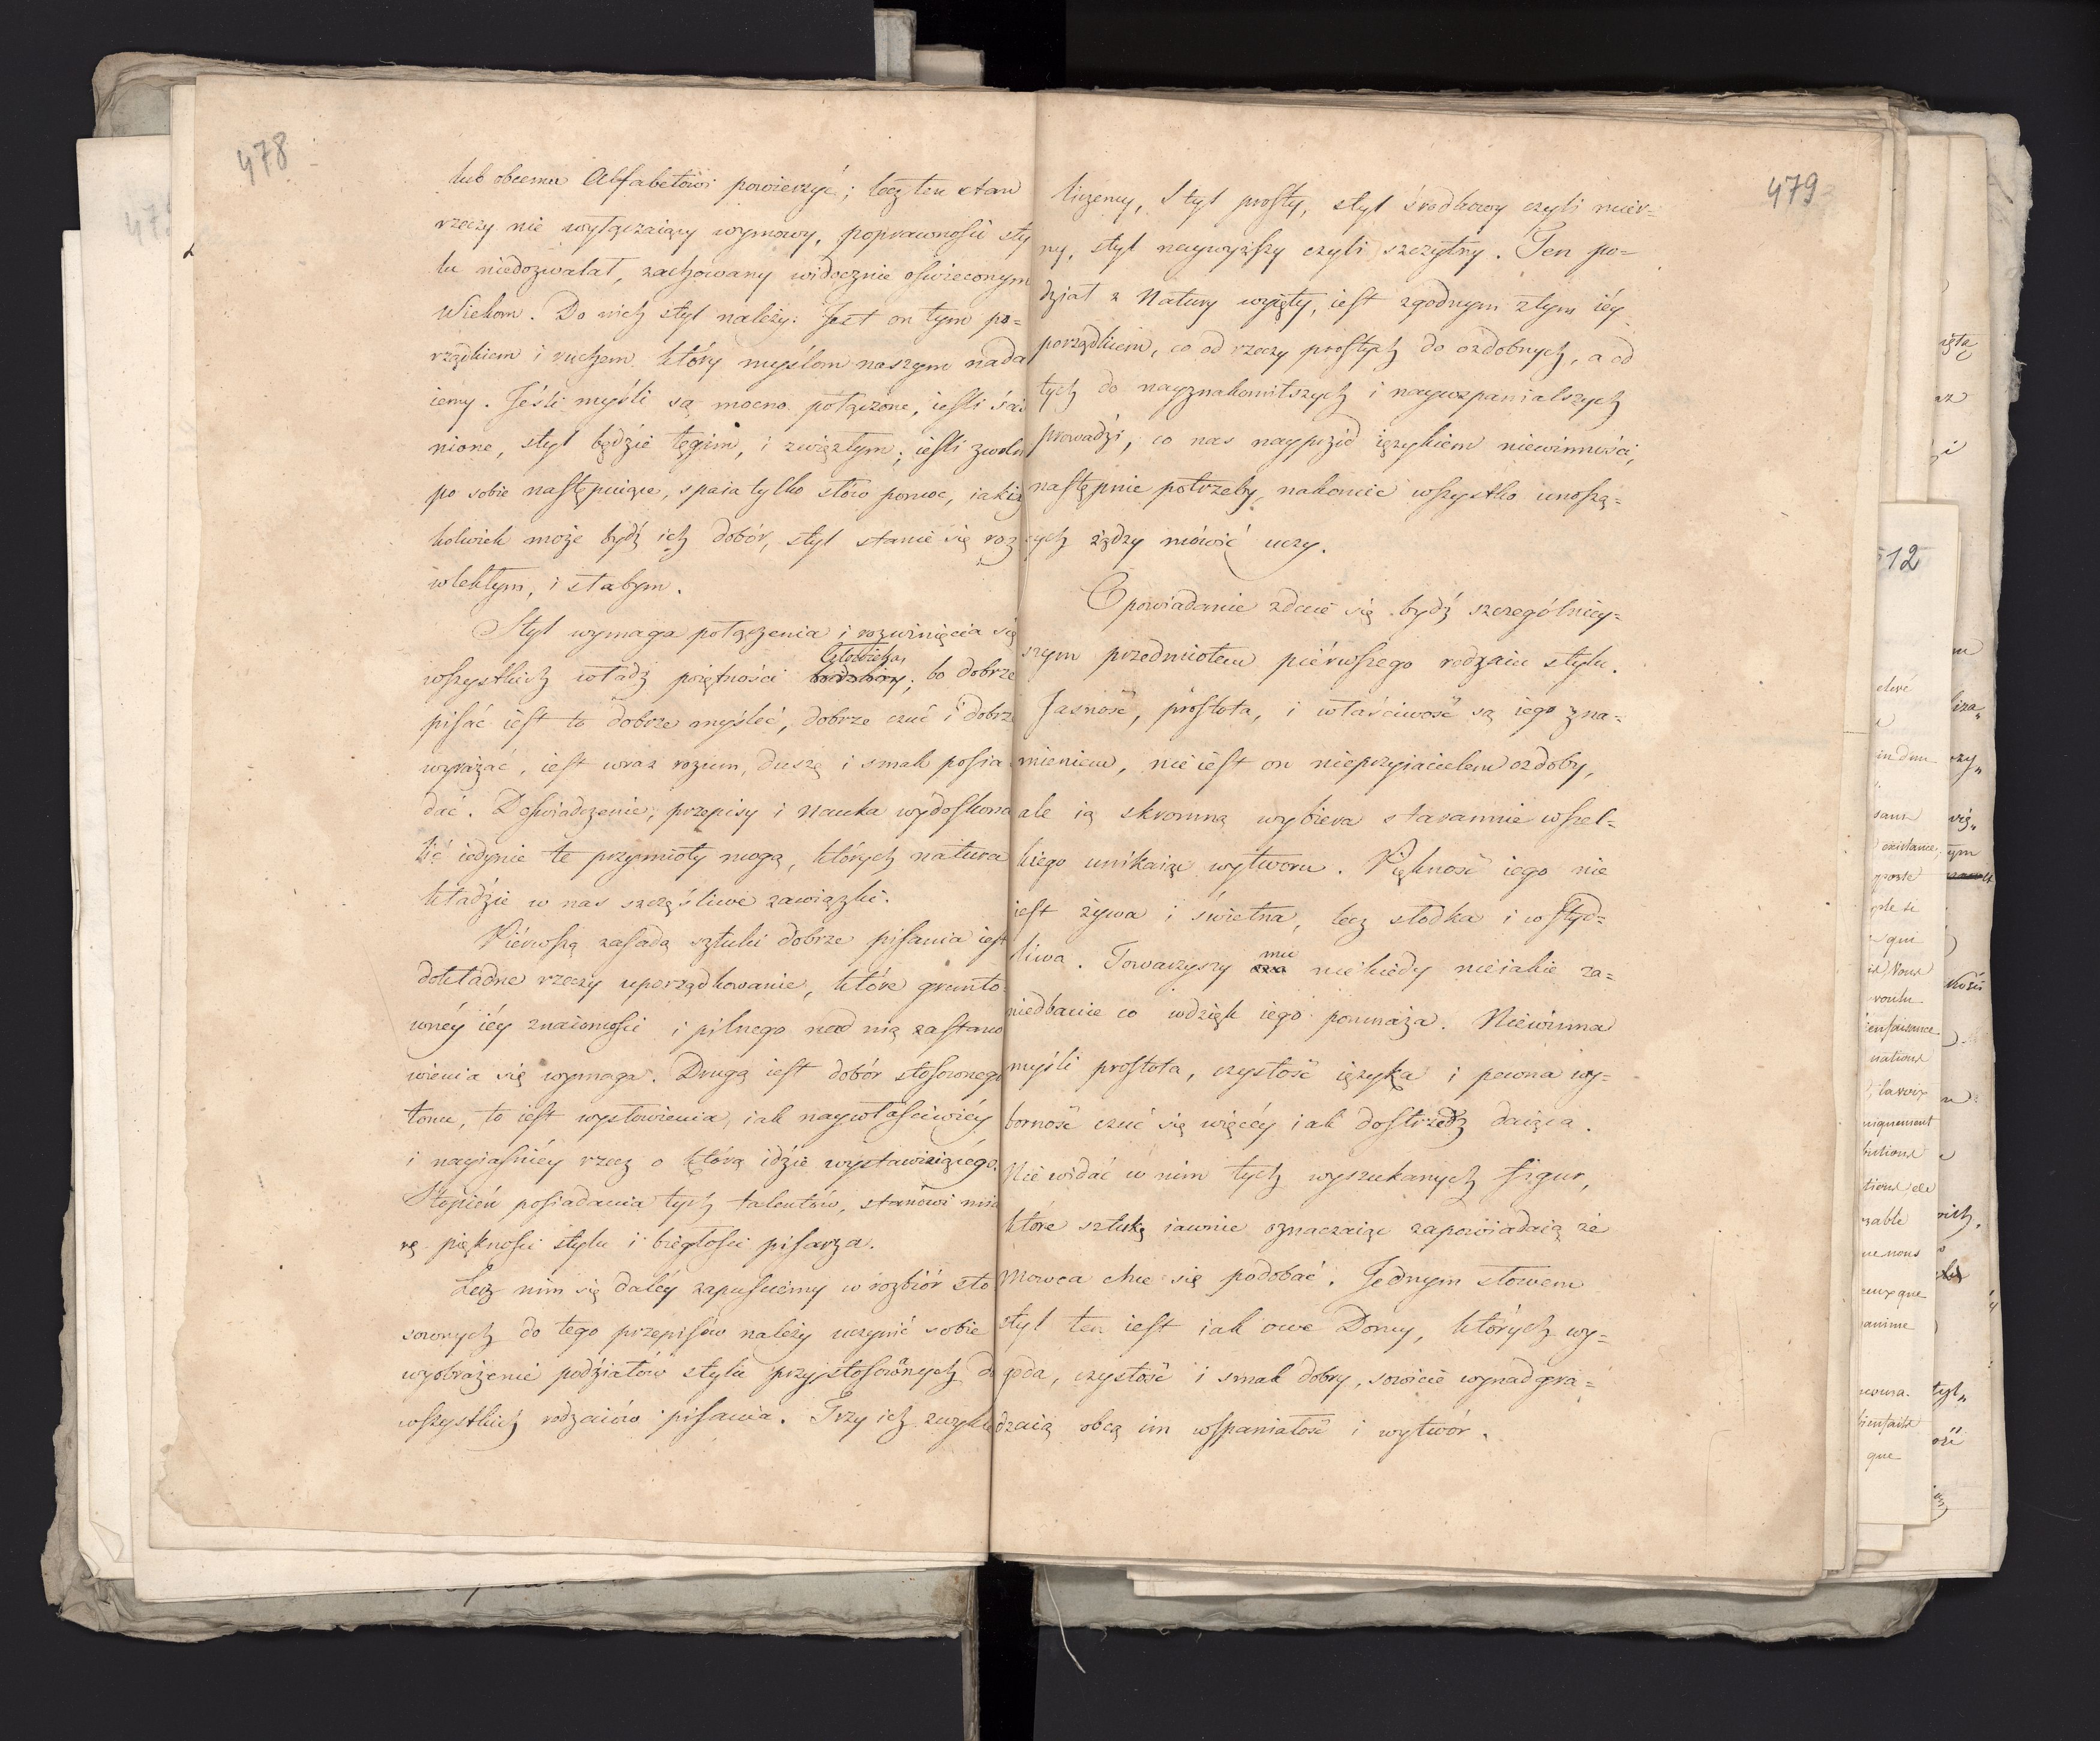 478
lub obcemu Alfabetowi powierzyć; lecz ten stan
rzeczy nie wyłączaiący wymowy, poprawności sty
lu niedozwalał, zachowany widocznie oświeconym
Wiekom. Do nich styl należy: Jest on tym po=
rządkiem i ruchem który myślom naszym nada
iemy. Jeśli myśli są mocno połączone, ieśli ści
nione, styl będzie tęgim, i zwięzłym; ieśli zwoln
po sobie następuiące, spaia tylko słów pomoc, iakiż
kolwiek może bydź ich dobór, styl stanie się roz
wlekłym, i słabym.
Styl wymaga połączenia i rozwinięcia się
Człowieka,
wszystkich władz poiętności ; bo dobrze
pisać iest to dobrze myśleć, dobrze czuć i dobrz
wyrażać, iest wraz rozum, duszę i smak posia
dać. Doświadczenie, przepisy i Nauka wydoskona
lić iedynie te przymioty mogą, których natura
kładzie w nas szczęśliwe zawiązki.
Piérwszą zasadą sztuki dobrze pisania iest
dokładne rzeczy uporządkowanie, które grunto
wnéy iéy znaiomości i pilnego nad nią zastano
wienia się wymaga. Drugą iest dobór stosownego
tonu, to iest wysłowienia, iak naywłaściwiéy
i nayiaśniéy rzecz o którą idzie wystawiaiącégo.
Stopień posiadania tych talentów, stanowi mia
rę piękności stylu i biegłości pisarza.
Lecz nim się daléy zapuścimy w rozbiór sto
sownych do tego przepisów należy uczynić sobie
wyobrażenie podziałów stylu przystosownych do
wszystkich rodzaiów pisania. Trzy ich zwykle
479
liczemy, Styl prosty, styl środkowy czyli mier=
ny, styl naywyższy czyli szczytny. Ten po=
dział z Natury wzięty, iest zgodnym z tym iéy
porządkiem, co od rzeczy prostych do ozdobnych, a od
tych do nayznakomitszych i naywspanialszych
prowadzi, co nas nayprzód ięzykiem niewinności,
następnie potrzeby, nakoniec wszystko unoszą=
cych żądzy mówić uczy.
Opowiadanie zdaie się bydź szczególniey=
szym przedmiotem piérwszego rodzaiu stylu.
Jasność, prostota, i właściwość są iego zna=
mieniem, nie iest on nieprzyiacielem ozdoby,
ale ią skromną wybiera starannie wszel=
kiego unikaiąc wytworu. Piękność iego nie
iest żywa i świetna, lecz słodka i wstyd=
mu
liwa. Towarzyszy niekiedy nieiakie za=
niedbanie co wdzięk iego pomnaża. Niewinna
myśli prostota, czystość ięzyka i pewna wy=
borność czuć się więcéy iak dostrzedz daiąca.
Nie widać w nim tych wyszukanych figur,
które sztukę iawnie oznaczaiąc zapowiadaią że
Mowca chce się podobać. Jednym słowem
styl ten iest iak owe Domy, których wy=
goda, czystość i smak dobry, sowicie wynadgra=
dzaią obcą im wspaniałość i wytwór.
512